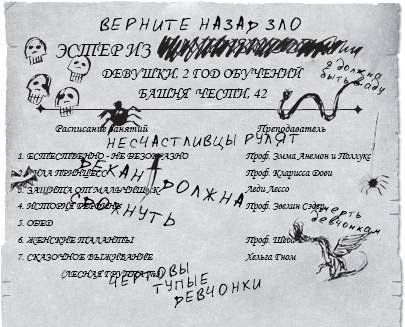 ВЕРНИТЕ НАЗАД ЗЛО
ЭСТЕР ИЗ
ДЕВУШКИ, 2 ГОД ОБУЧЕНИЙ
Я ДОЛЖНА
БЫТЬ В АДУ
БАШНЯ ЧЕСТИ, 42
Расписание занятий Преподаватель
НЕСЧАСТЛИВЦЫ РУЛЯТ
1. ЕСТЕСТВЕННО - НЕ БЕЗОБРАЗНО Проф. Эмма Анемон и Поллукс
2. СИЛА ПРИНЦЕСС Проф. Кларисса Дови
3. ЗАЩИТА ОТ МАЛЬЧИШЕК Леди Лессо
4. ИСТОРИЯ ГЕРОИНЬ Проф. Эвелин Сэдер
5. ОБЕД
6. ЖЕНСКИЕ ТАЛАНТЫ Проф.
7. СКАЗОЧНОЕ ВЫЖИВАНИЕ Хельга Гном
(ЛЕСНАЯ ГРУППА
ДЕКАНА
ДОЛЖНА
СДОХНУТЬ
СМЕРТЬ
ДЕВЧОНКАМ
ЧЕРТОВЫ
ТУПЫЕ
ДЕВЧОНКИ